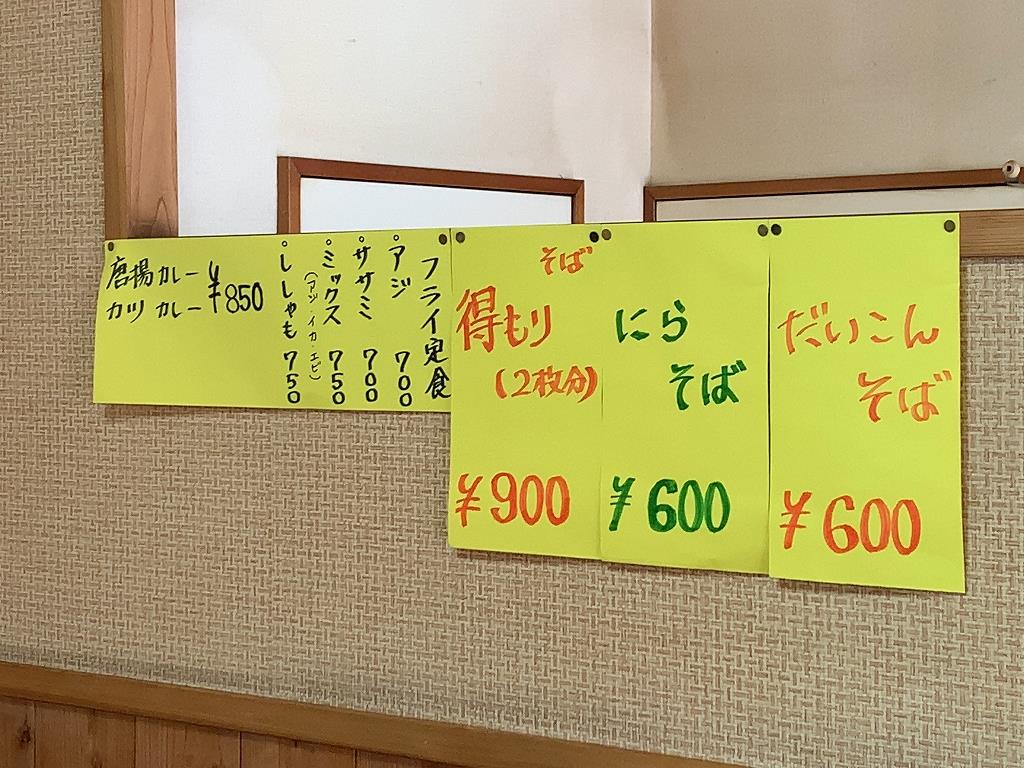 唐揚カレー
カツカレー ¥850
フライ定食
。アジ 700
。ササミ 700
。ミックス 750
(アジ・イカ・エビ)
。ししゃも 750
そば
得もり
(2枚分)
¥900
にら
そば
¥600
だいこん
そば
¥600